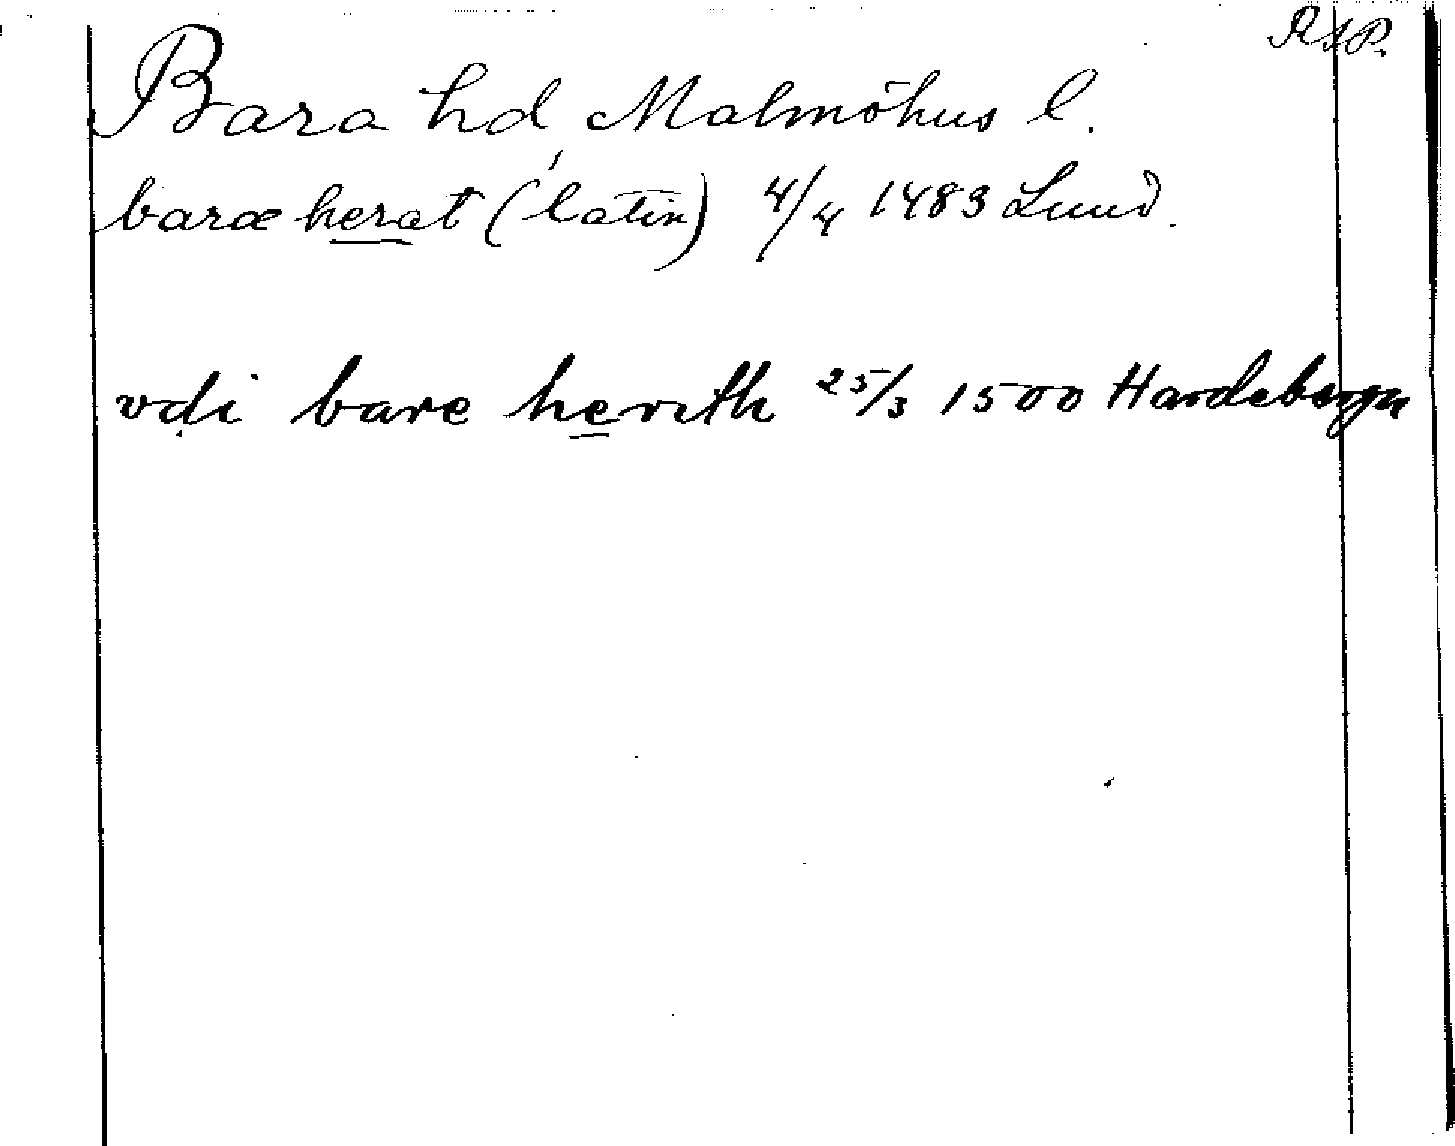 RAP.
Bara hd, Malmöhus l.
baræ herat (latin) 4/4 1483 Lund.
vdi bare herith 25/3 1500 Hardeberga